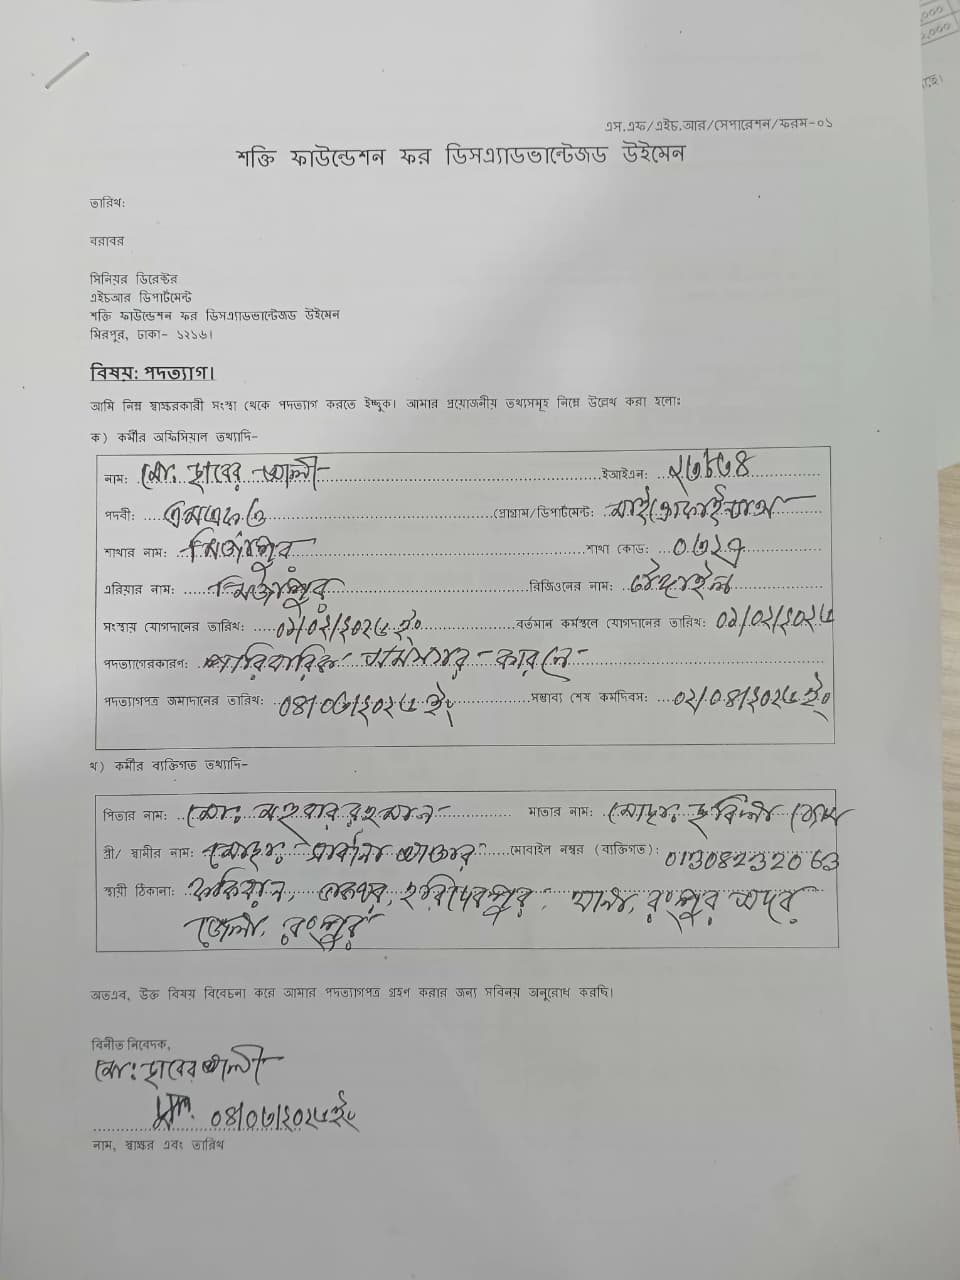 ,000
2,000
ছে।
এস.এফ/এইচ.আর/সেপারেশন/ফরম-০১
শক্তি ফাউন্ডেশন ফর ডিসএ্যাডভান্টেজড উইমেন
তারিখ:
বরাবর
সিনিয়র ডিরেক্টর
এইচআর ডিপার্টমেন্ট
শক্তি ফাউন্ডেশন ফর ডিসএ্যাডভান্টেজড উইমেন
মিরপুর, ঢাকা- ১২১৬।
বিষয়: পদত্যাগ।
আমি নিম্ন স্বাক্ষরকারী সংস্থা থেকে পদত্যাগ করতে ইচ্ছুক। আমার প্রয়োজনীয় তথ্যসমূহ নিম্নে উল্লেখ করা হলো:
ক) কর্মীর অফিসিয়াল তথ্যাদি-
নাম: মো: আলী ইআইএন: ২৩৮৩৪
পদবী: প্রোগ্রাম/ডিপার্টমেন্ট: মাইক্রোফাইন্যান্স
শাখার নাম: মির্জাপুর শাখা কোড:
এরিয়ার নাম: মির্জাপুর রিজিওনের নাম: টাঙ্গাইল
সংস্থায় যোগদানের তারিখ: বর্তমান কর্মস্থলে যোগদানের তারিখ:
পদত্যাগেরকারণ: পারিবারিক সমস্যার কারনে
পদত্যাগপত্র জমাদানের তারিখ: ০৪/০৩/২০২৫ ইং সম্ভাব্য শেষ কর্মদিবস: ০২/০৪/২০২৫ ইং
খ) কর্মীর ব্যক্তিগত তথ্যাদি-
পিতার নাম: মো: রহমান মাতার নাম: মোছা: বেগম
স্ত্রী/ স্বামীর নাম: মোছা: আক্তার মোবাইল নম্বর (ব্যক্তিগত): 01308232063
স্থায়ী ঠিকানা: হরিদেবপুর, থানা, রংপুর সদর
জেলা, রংপুর
অতএব, উক্ত বিষয় বিবেচনা করে আমার পদত্যাগপত্র গ্রহণ করার জন্য সবিনয় অনুরোধ করছি।
বিনীত নিবেদক,
মো: আলী
০৪/০৩/২০২৫ইং
নাম, স্বাক্ষর এবং তারিখ